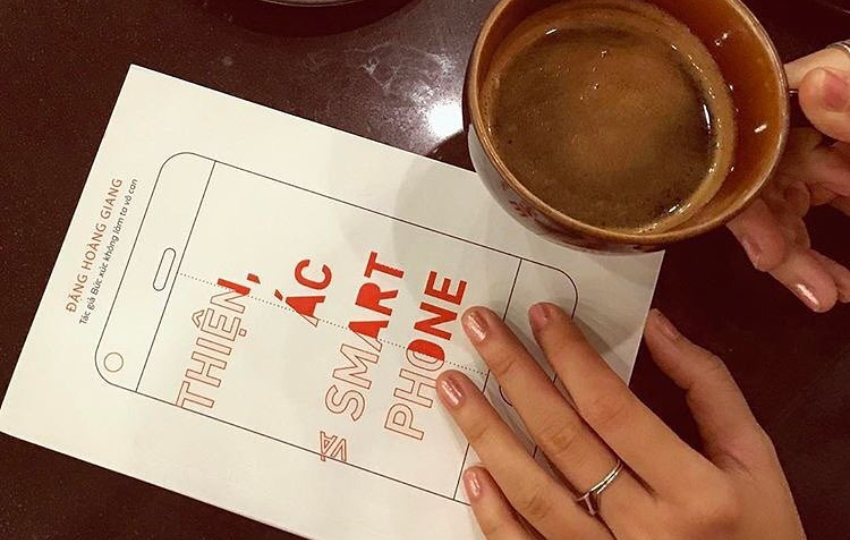 ĐẶNG HOÀNG GIANG
Tác giả Bức xúc không làm ta vô can
THIỆN,
ÁC
VÀ SMART
PHONE